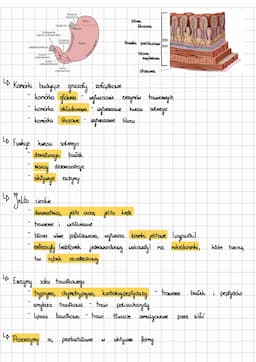 błona
śluzowa
błona podśluzowa
błona
mięśniowa
↳ Komórki budujące gruczoły żołądkowe
- komórka główna - wytwarzanie enzymów trawiennych
- komórka okładzinowa - wytwarzanie kwasu solnego
- komórka śluzowa - wytwarzanie śluzu
↳ Funkcje kwasu solnego
- denaturuje białka
- niszczy drobnoustroje
- aktywuje enzymy
↳ Jelito cienkie
- dwunastnica, jelito czcze, jelito kręte
- trawienie i wchłanianie
- błona silnie pofałdowana, wytwarza kosmki jelitowe (wypustki)
- enterocyty (nabłonek jednowarstwowy walcowaty) ma mikrokosmki, które tworzą
tzw. rąbek szczoteczkowy
↳ Enzymy soku trzustkowego
- trypsyna, chymotrypsyna, karboksypeptydazy - trawienie białek i peptydów
- amylaza trzustkowa - trawi polisacharydy
- lipaza trzustkowa - trawi tłuszcze zemulgowane przez żółć
↳ Proenzymy są przekształcane w aktywne formy